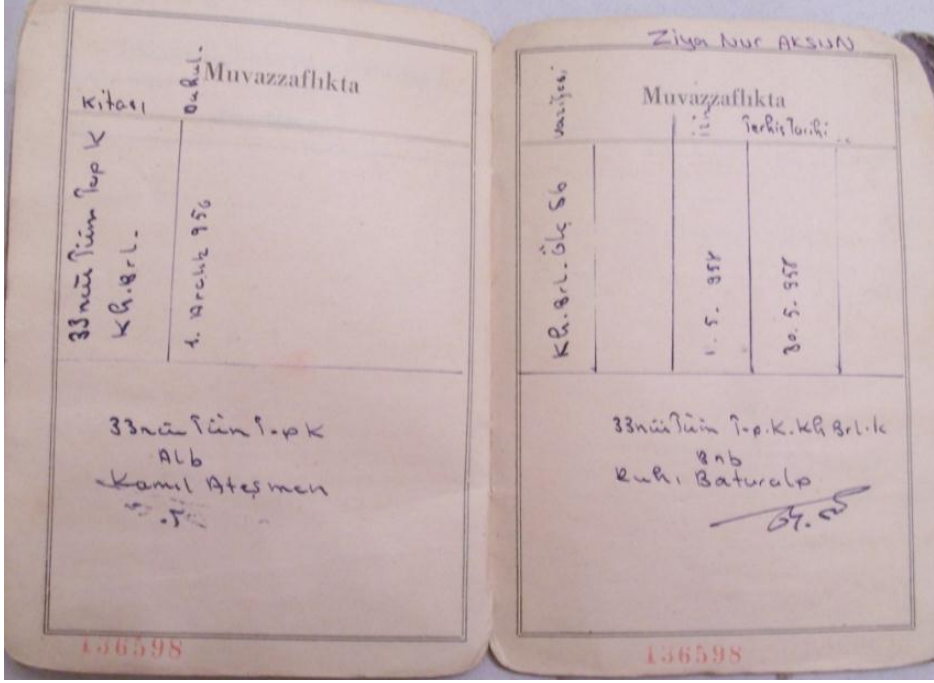 Muvazzaflıkta
Kitası
Duhul.
33ncü Tüm Top K
Kh. Brl.
1. Aralık 956
33ncü Tüm Top K
Alb
Kamil Ateşmen
136598
Ziya Nur AKSUN
Muvazzaflıkta
vazifesi
izin
Terhis Tarihi
Kh. Brl. Ölç Sb
1. 5. 958
30. 5. 958
33ncü Tüm Top. K. Kh Brl. k
Bnb
Ruhi Baturalp
136598